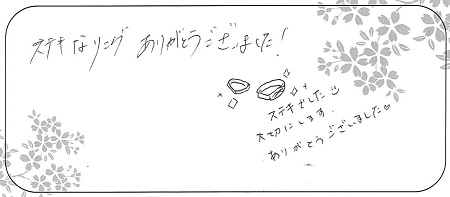 ステキなリング ありがとうございました!
ステキでした
大切にします.
ありがとうございました